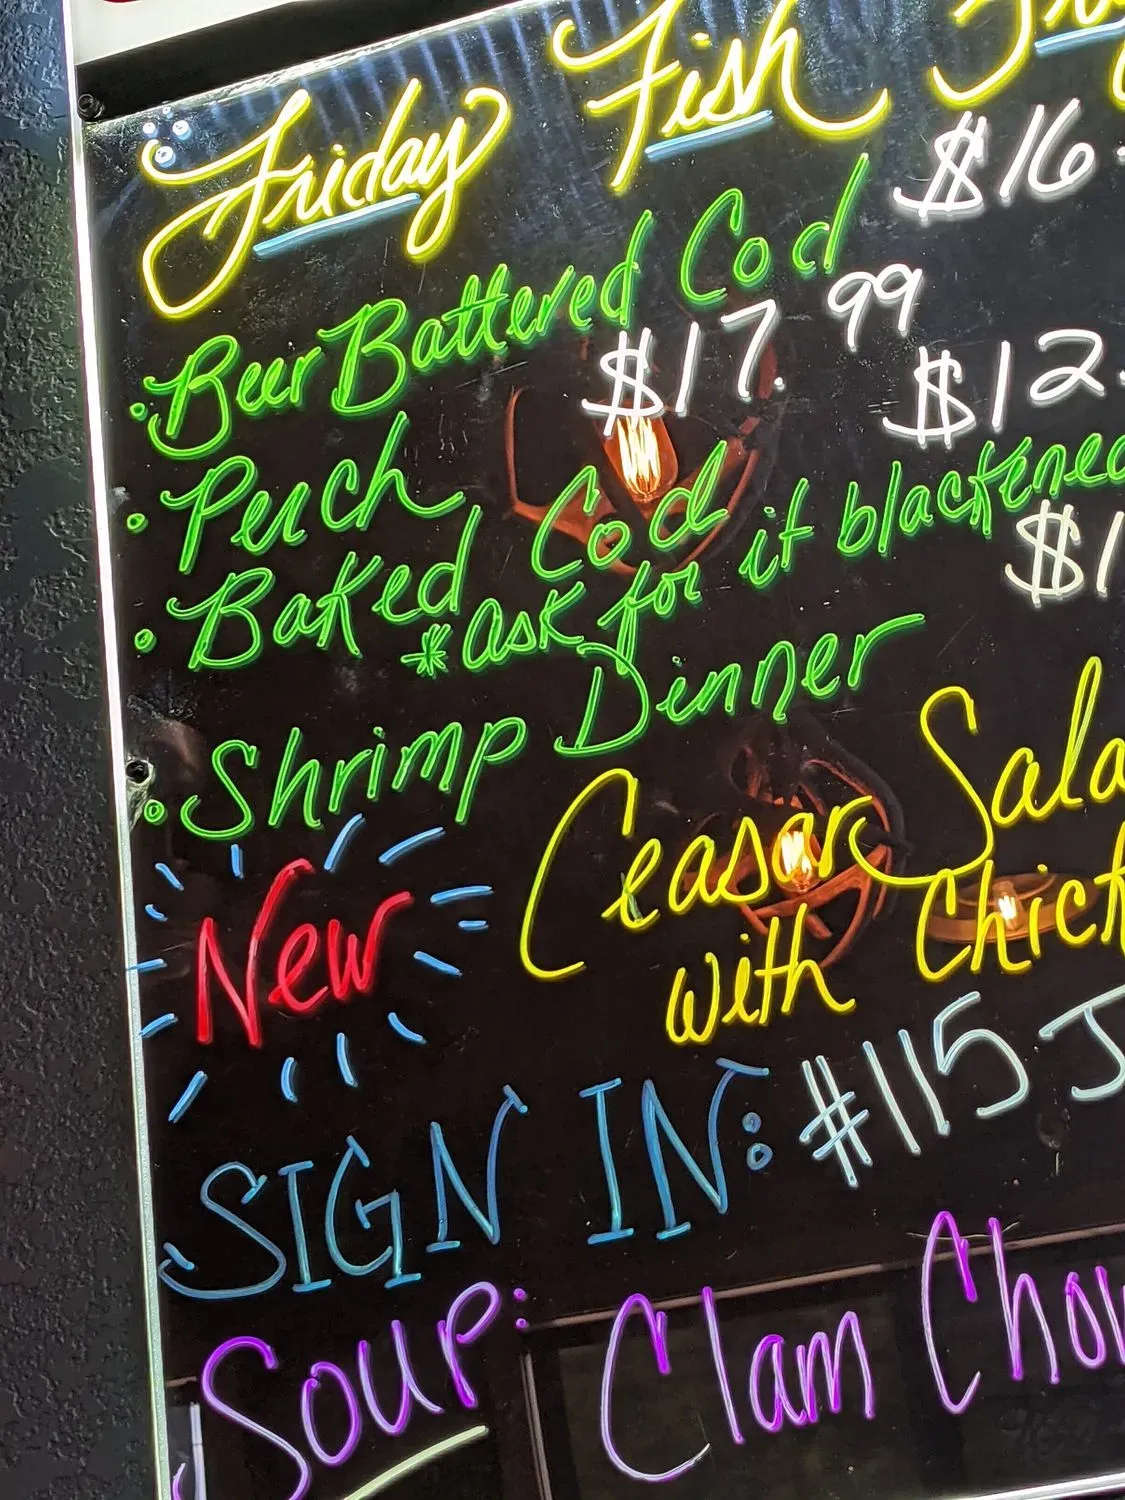 Friday Fish Fry
Beer Battered Cod $16.
Perch $17.99
Baked Cod $12.
*ask for it blackened
Shrimp Dinner $1
New Ceasar Sala
with Chick
SIGN IN: #115 J
Soup: Clam Chow